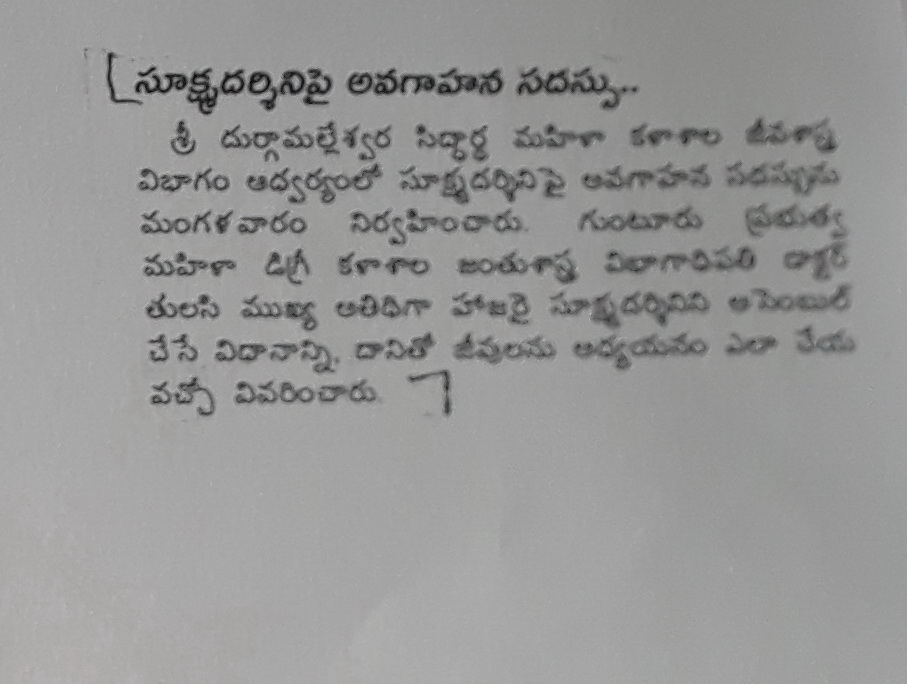 సూక్ష్మదర్శినిపై అవగాహన సదస్సు..
శ్రీ దుర్గామల్లేశ్వర సిద్ధార్థ మహిళా కళాశాల జీవశాస్త్ర
విభాగం ఆధ్వర్యంలో సూక్ష్మదర్శినిపై అవగాహన సదస్సును
మంగళవారం నిర్వహించారు. గుంటూరు ప్రభుత్వ
మహిళా డిగ్రీ కళాశాల జంతుశాస్త్ర విభాగాధిపతి డాక్టర్
తులసి ముఖ్య అతిథిగా హాజరై సూక్ష్మదర్శినిని అసెంబుల్
చేసే విధానాన్ని, దానితో జీవులను అధ్యయనం ఎలా చేయ
వచ్చో వివరించారు.